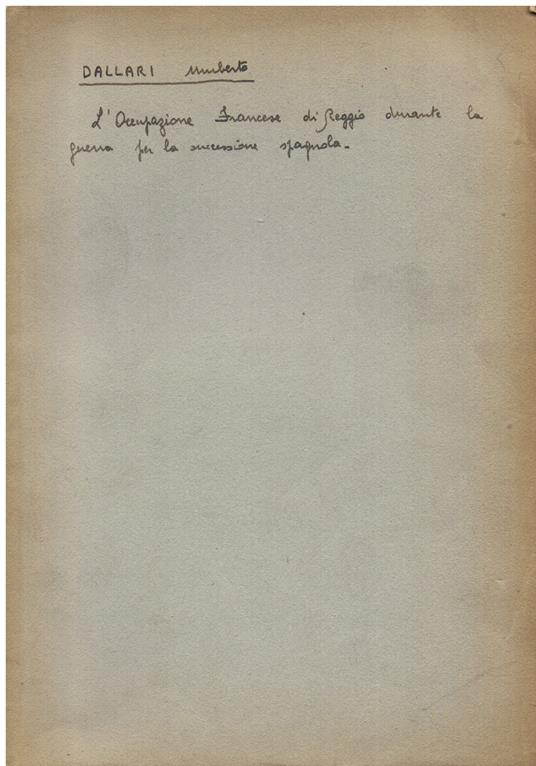 DALLARI Umberto
L'Occupazione Francese di Reggio durante la
guerra per la successione spagnola.